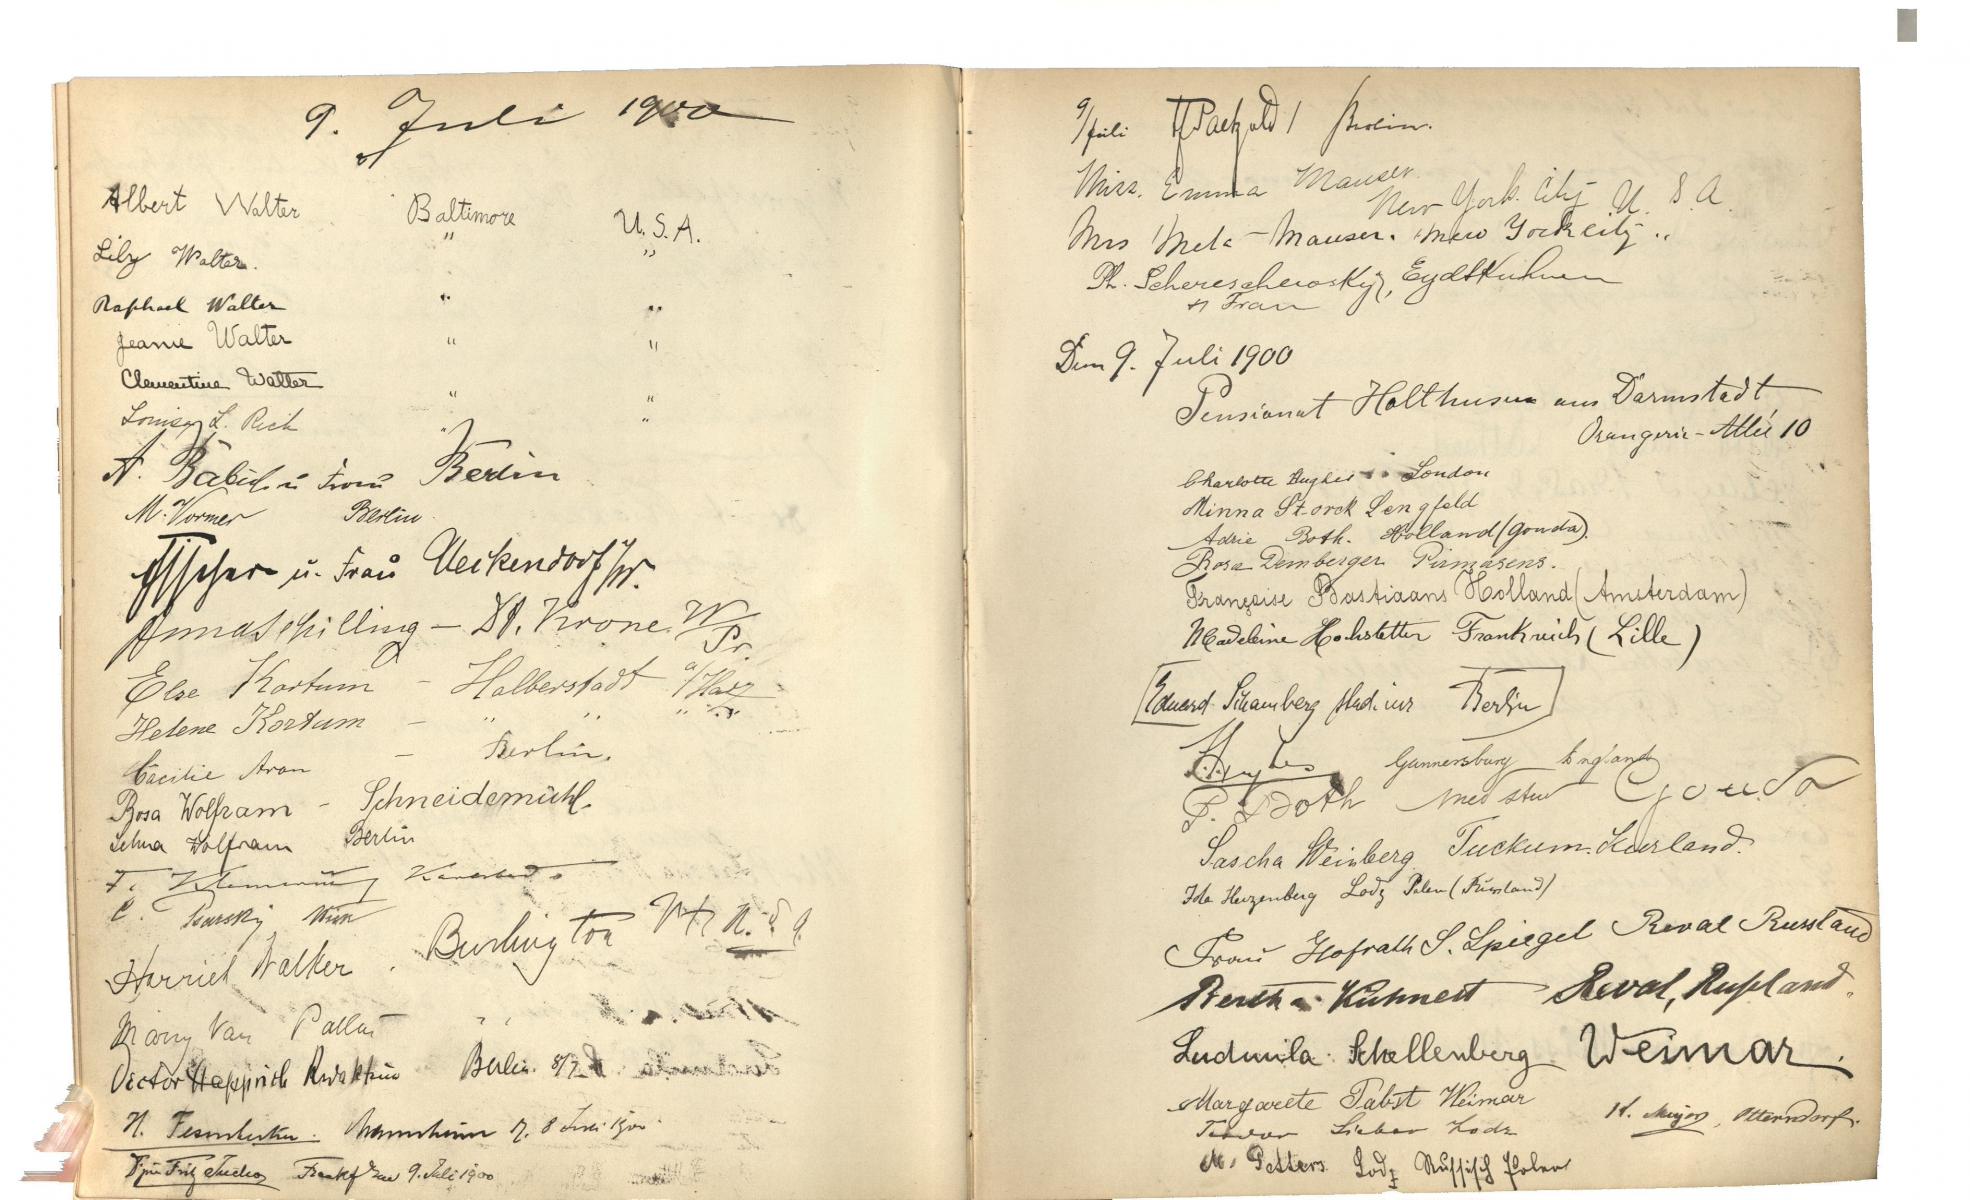 9. Juli 1900
Albert Walter Baltimore U.S.A.
Lily Walter. " "
Raphael Walter " "
Jeanie Walter " "
Clementine Walter " "
Louise L. Rich " "
A. Babick u Frau Berlin
M. Vormer Berlin
u. Frau Ueckendorf
Anna Schilling – Dt. Krone W/Pr.
Else Kortum – Halberstadt a/Harz
Helene Kortum – " " "
Cäcilie Aron – Berlin.
Rosa Wolfram – Schneidemühl.
Selma Wolfram Berlin
F.
C. Wien
Harriet Walker. Burlington
Mary Van " "
Victor Happrich Redakteur Berlin 8/7
H. Mannheim 8 Juli 1900
Fritz 9. Juli 1900
9/Juli Berlin.
Miss. Emma Mauser.
New York. City U. S. A.
Mrs Meta Mauser. New York city "
Ph. Schereschewsky, Eydtkuhnen
u Frau
Den 9. Juli 1900
Pensionat Holthusen aus Darmstadt
Orangerie-Allée 10
Charlotte Hughes London
Minna Storck Lengfeld
Adrie Both. Holland (Gouda).
Rosa Demberger Pirmasens.
Françoise Bastiaans Holland (Amsterdam)
Madeleine Hochstetter Frankreich (Lille)
Eduard Schamberg Berlin
Hughes Gunnersbury England
P. Both Gouda
Sascha Weinberg Tuckum. Kurland.
Ida Herzenberg Lodz Polen (Russland)
Frau Hofrath S. Spiegel Reval Russland
Bertha Kuhnert Reval, Rußland.
Ludmila Schellenberg Weimar.
Margarete Pabst Weimar
H. Meyer, Otterndorf.
Lodz
M. Petters Lodz Russisch Polen